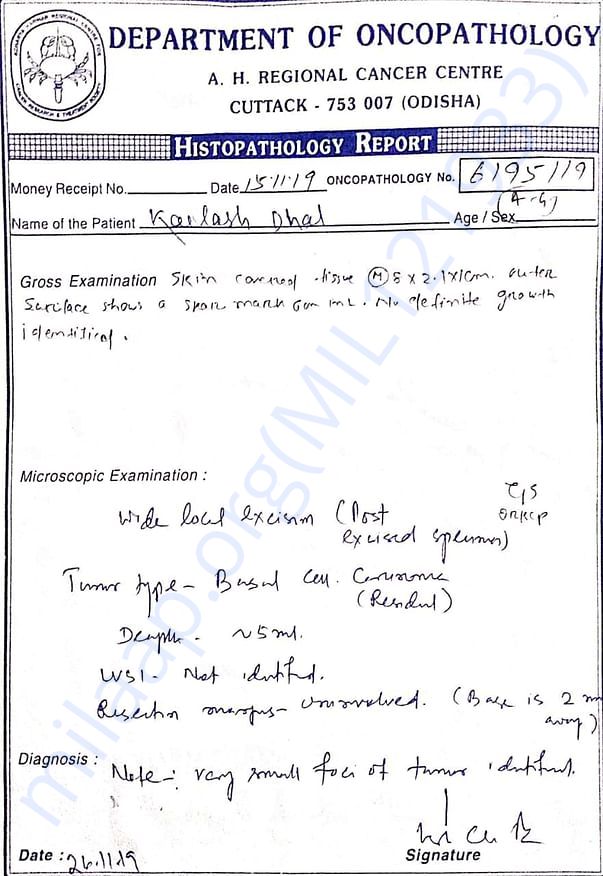 DEPARTMENT OF ONCOPATHOLOGY
A. H. REGIONAL CANCER CENTRE
CUTTACK - 753 007 (ODISHA)
HISTOPATHOLOGY REPORT
Money Receipt No. Date 15.11.19 ONCOPATHOLOGY No. 6195/19
(A-G)
Name of the Patient Kailash Dhal Age / Sex
Gross Examination Skin covered tissue (M) 5 x 2.1x1cm. outer
surface shows a mark No definite growth
identified.
Microscopic Examination :
Wide local excision (Post
excised specimen)
Tumor type - Basal Cell Carcinoma
(Residual)
Depth - ~5ml.
Not identified.
Resection margins - Uninvolved. (Base is 2 m
away)
Diagnosis :
Note -: very small foci of tumor identified.
Date : 26.11.19
Signature
milaap.org(MIL121933)